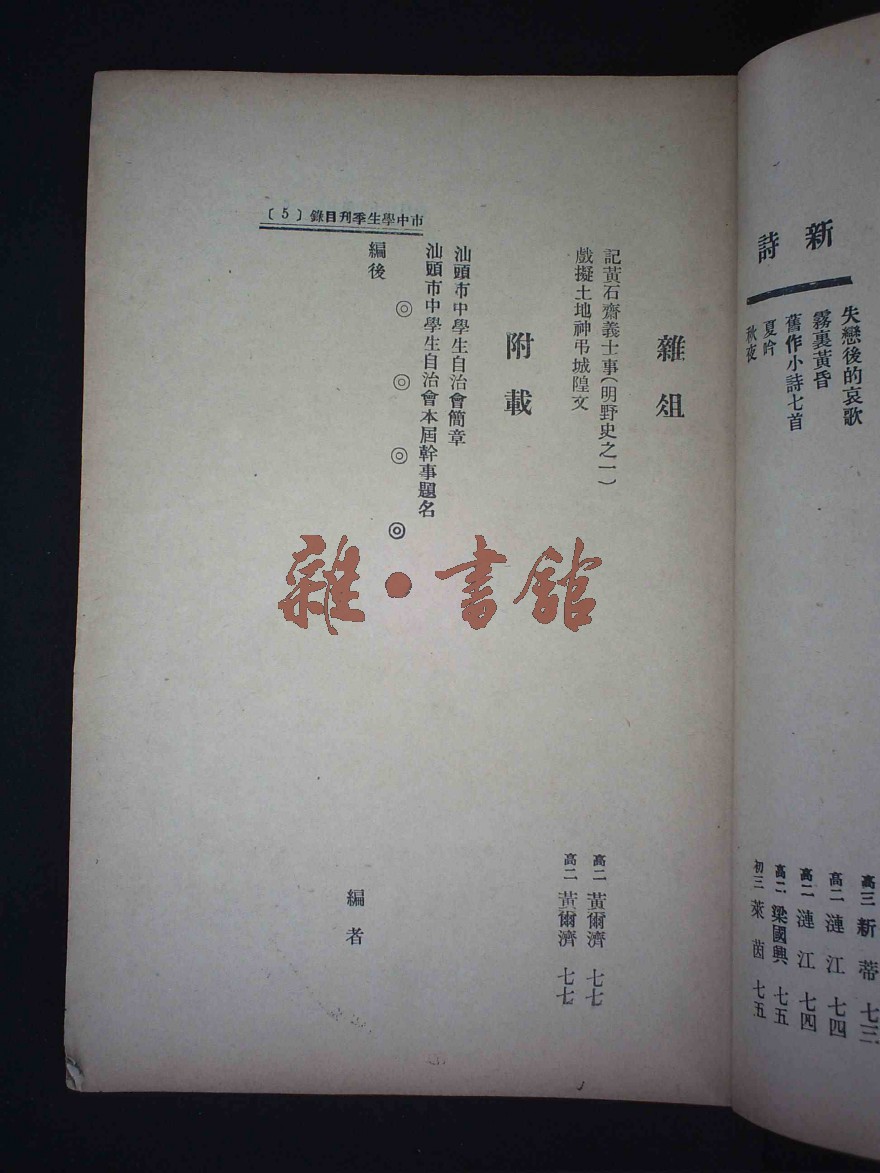 新詩
失戀後的哀歌 高三 新蒂 七三
霧裏黃昏 高二 漣江 七四
舊作小詩七首 高二 漣江 七四
夏吟 高二 梁國興 七五
秋夜 初三 萊茵 七五
雜俎
記黃石齋義士事(明野史之一) 高二 黃爾濟 七七
戲擬土地神弔城隍文 高二 黃爾濟 七七
附載
汕頭市中學生自治會簡章
汕頭市中學生自治會本屆幹事題名
◎ ◎ ◎ ◎
編後 編者
市中學生季刊目錄〔5〕
雜·書館